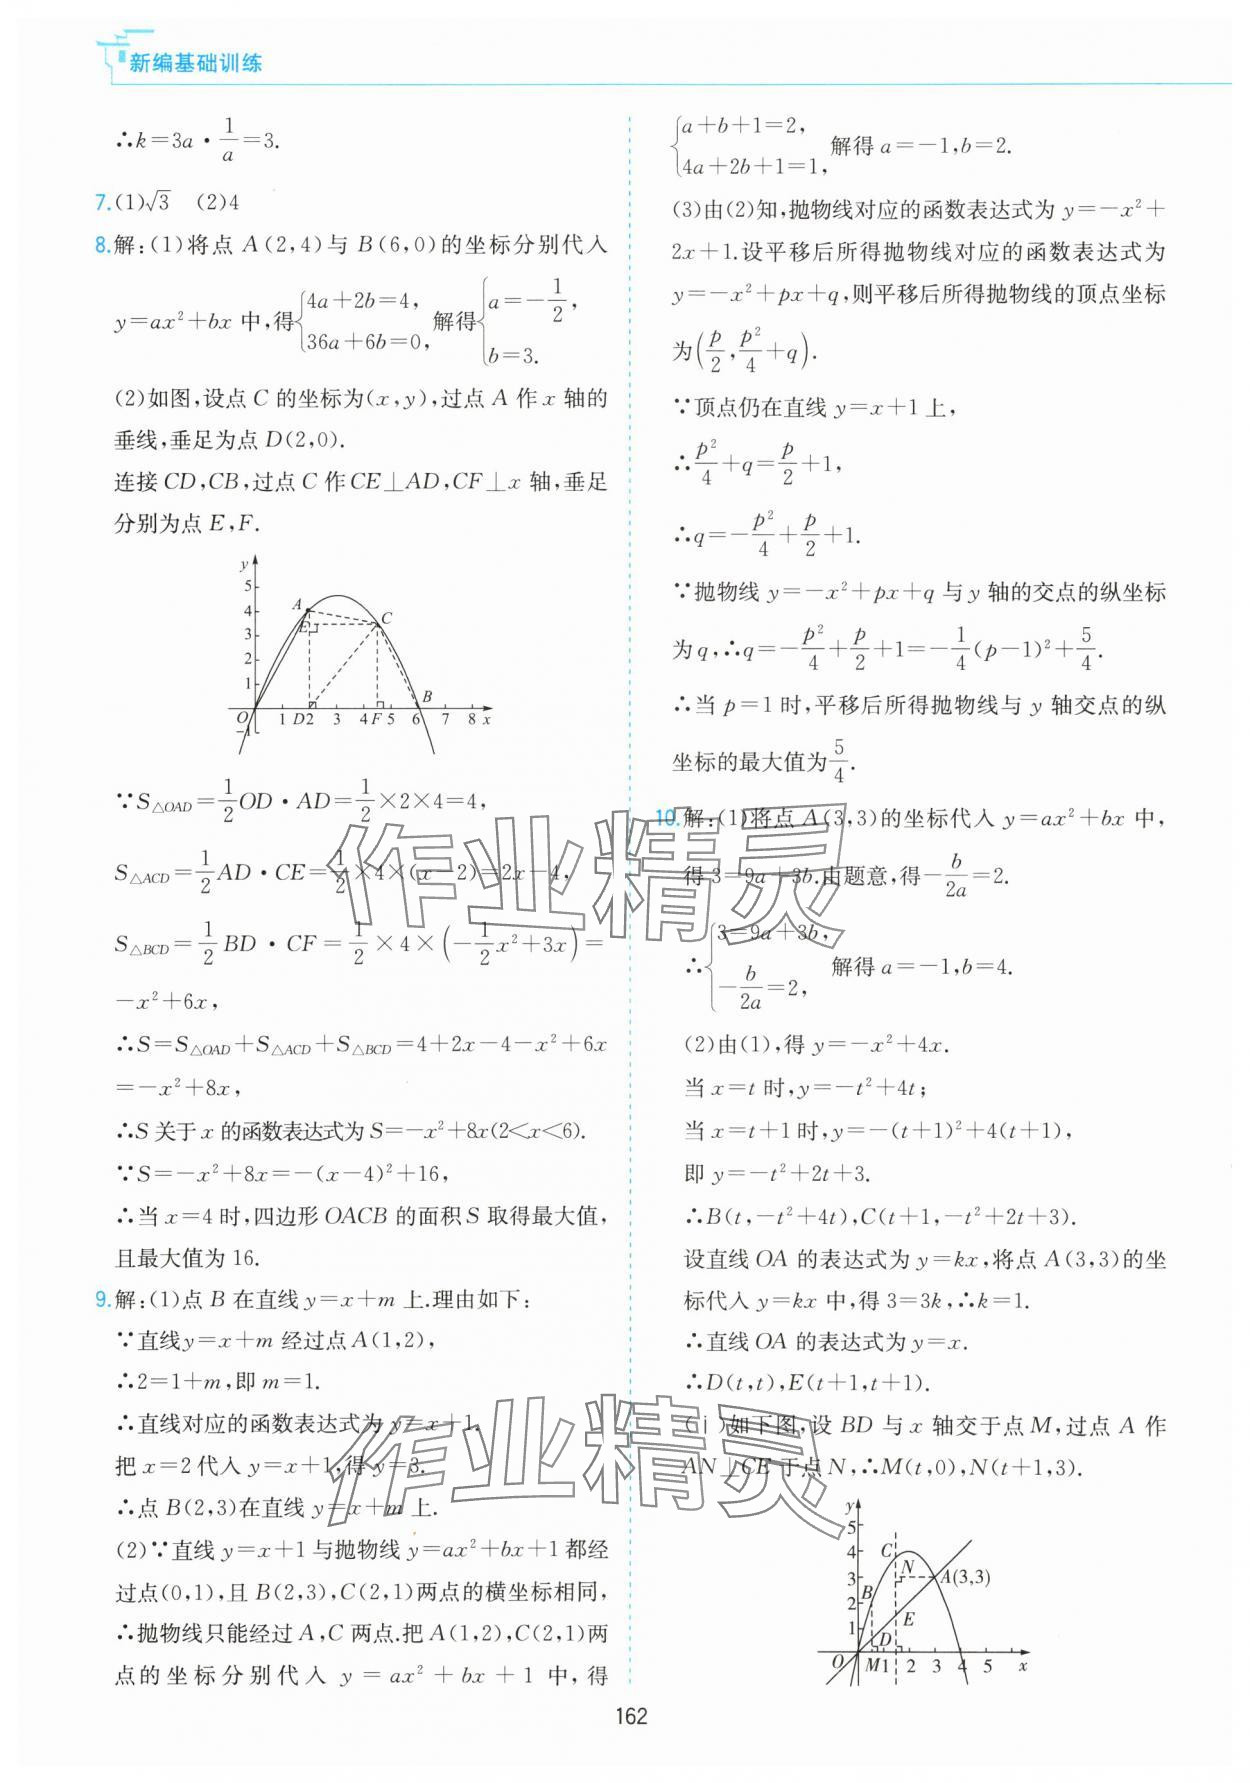 新编基础训练
∴k=3a·1/a=3.
7.(1)√3 (2)4
8.解:(1)将点 A(2,4)与 B(6,0)的坐标分别代入
y=ax²+bx 中,得{4a+2b=4, 36a+6b=0, 解得{a=-1/2, b=3.
(2)如图,设点 C 的坐标为(x,y),过点 A 作 x 轴的
垂线,垂足为点 D(2,0).
连接 CD,CB,过点 C 作 CE⊥AD,CF⊥x 轴,垂足
分别为点 E,F.
y
5
4
3
2
1
O
-1
A
E
C
B
1 D2 3 4 F 5 6 7 8 x
∵S△OAD=1/2OD·AD=1/2×2×4=4,
S△ACD=1/2AD·CE=1/2×4×(x-2)=2x-4,
S△BCD=1/2BD·CF=1/2×4×(-1/2x²+3x)=
-x²+6x,
∴S=S△OAD+S△ACD+S△BCD=4+2x-4-x²+6x
=-x²+8x,
∴S 关于 x 的函数表达式为 S=-x²+8x(2<x<6).
∵S=-x²+8x=-(x-4)²+16,
∴当 x=4 时,四边形 OACB 的面积 S 取得最大值,
且最大值为 16.
9.解:(1)点 B 在直线 y=x+m 上.理由如下:
∵直线 y=x+m 经过点 A(1,2),
∴2=1+m,即 m=1.
∴直线对应的函数表达式为 y=x+1.
把 x=2 代入 y=x+1,得 y=3.
∴点 B(2,3)在直线 y=x+m 上.
(2)∵直线 y=x+1 与抛物线 y=ax²+bx+1 都经
过点(0,1),且 B(2,3),C(2,1)两点的横坐标相同,
∴抛物线只能经过 A,C 两点.把 A(1,2),C(2,1)两
点的坐标分别代入 y=ax²+bx+1 中,得
{a+b+1=2, 4a+2b+1=1, 解得 a=-1,b=2.
(3)由(2)知,抛物线对应的函数表达式为 y=-x²+
2x+1.设平移后所得抛物线对应的函数表达式为
y=-x²+px+q,则平移后所得抛物线的顶点坐标
为(p/2,p²/4+q).
∵顶点仍在直线 y=x+1 上,
∴p²/4+q=p/2+1,
∴q=-p²/4+p/2+1.
∵抛物线 y=-x²+px+q 与 y 轴的交点的纵坐标
为 q,∴q=-p²/4+p/2+1=-1/4(p-1)²+5/4.
∴当 p=1 时,平移后所得抛物线与 y 轴交点的纵
坐标的最大值为5/4.
10.解:(1)将点 A(3,3)的坐标代入 y=ax²+bx 中,
得 3=9a+3b.由题意,得-b/2a=2.
∴{3=9a+3b, -b/2a=2, 解得 a=-1,b=4.
(2)由(1),得 y=-x²+4x.
当 x=t 时,y=-t²+4t;
当 x=t+1 时,y=-(t+1)²+4(t+1),
即 y=-t²+2t+3.
∴B(t,-t²+4t),C(t+1,-t²+2t+3).
设直线 OA 的表达式为 y=kx,将点 A(3,3)的坐
标代入 y=kx 中,得 3=3k,∴k=1.
∴直线 OA 的表达式为 y=x.
∴D(t,t),E(t+1,t+1).
(ⅰ)如下图,设 BD 与 x 轴交于点 M,过点 A 作
AN⊥CE 于点 N,∴M(t,0),N(t+1,3).
y
5
4
3
2
1
C
N
A(3,3)
B
E
D
O M 1 2 3 4 5 x
作业精灵
作业精灵
162